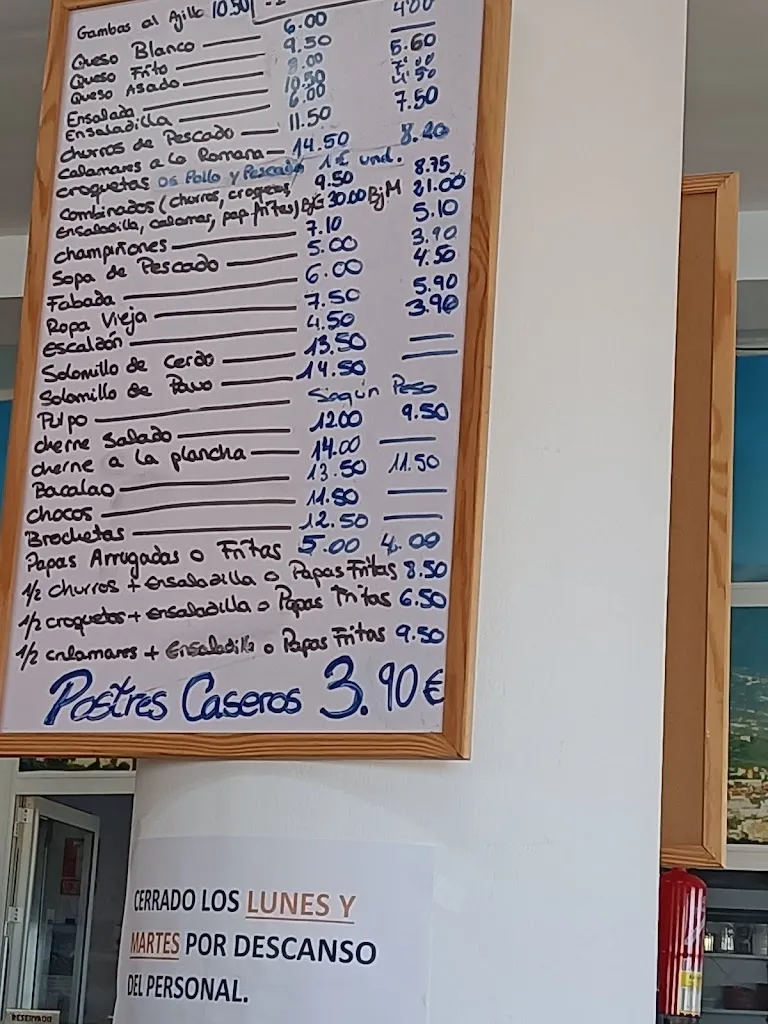 Gambas al Ajillo 10.50
Queso Blanco 6.00 4.00
Queso Frito 9.50
Queso Asado 8.00 5.60
Ensalada 10.50 7.00
Ensaladilla 6.00 4.50
Churros de Pescado 11.50 7.50
Calamares a la Romana 14.50 8.20
croquetas de Pollo y Pescado 1€ und.
Combinados (churros, croquetas 9.50 8.75
Ensaladilla, calamar, pap. fritas) BjG 30.00 BjM 21.00
champiñones 7.10 5.10
Sopa de Pescado 5.00 3.90
Fabada 6.00 4.50
Ropa Vieja 7.50 5.90
escaldón 4.50 3.90
Solomillo de Cerdo 13.50
Solomillo de Pavo 14.50
Pulpo Según Peso
cherne Salado 12.00 9.50
cherne a la plancha 14.00
Bacalao 13.50 11.50
chocos 11.50
Brochetas 12.50
Papas Arrugadas o Fritas 5.00 4.00
1/2 churros + ensaladilla o Papas Fritas 8.50
1/2 croquetas + ensaladilla o Papas Fritas 6.50
1/2 calamares + Ensaladilla o Papas Fritas 9.50
Postres Caseros 3.90€
CERRADO LOS LUNES Y
MARTES POR DESCANSO
DEL PERSONAL.
RESERVADO